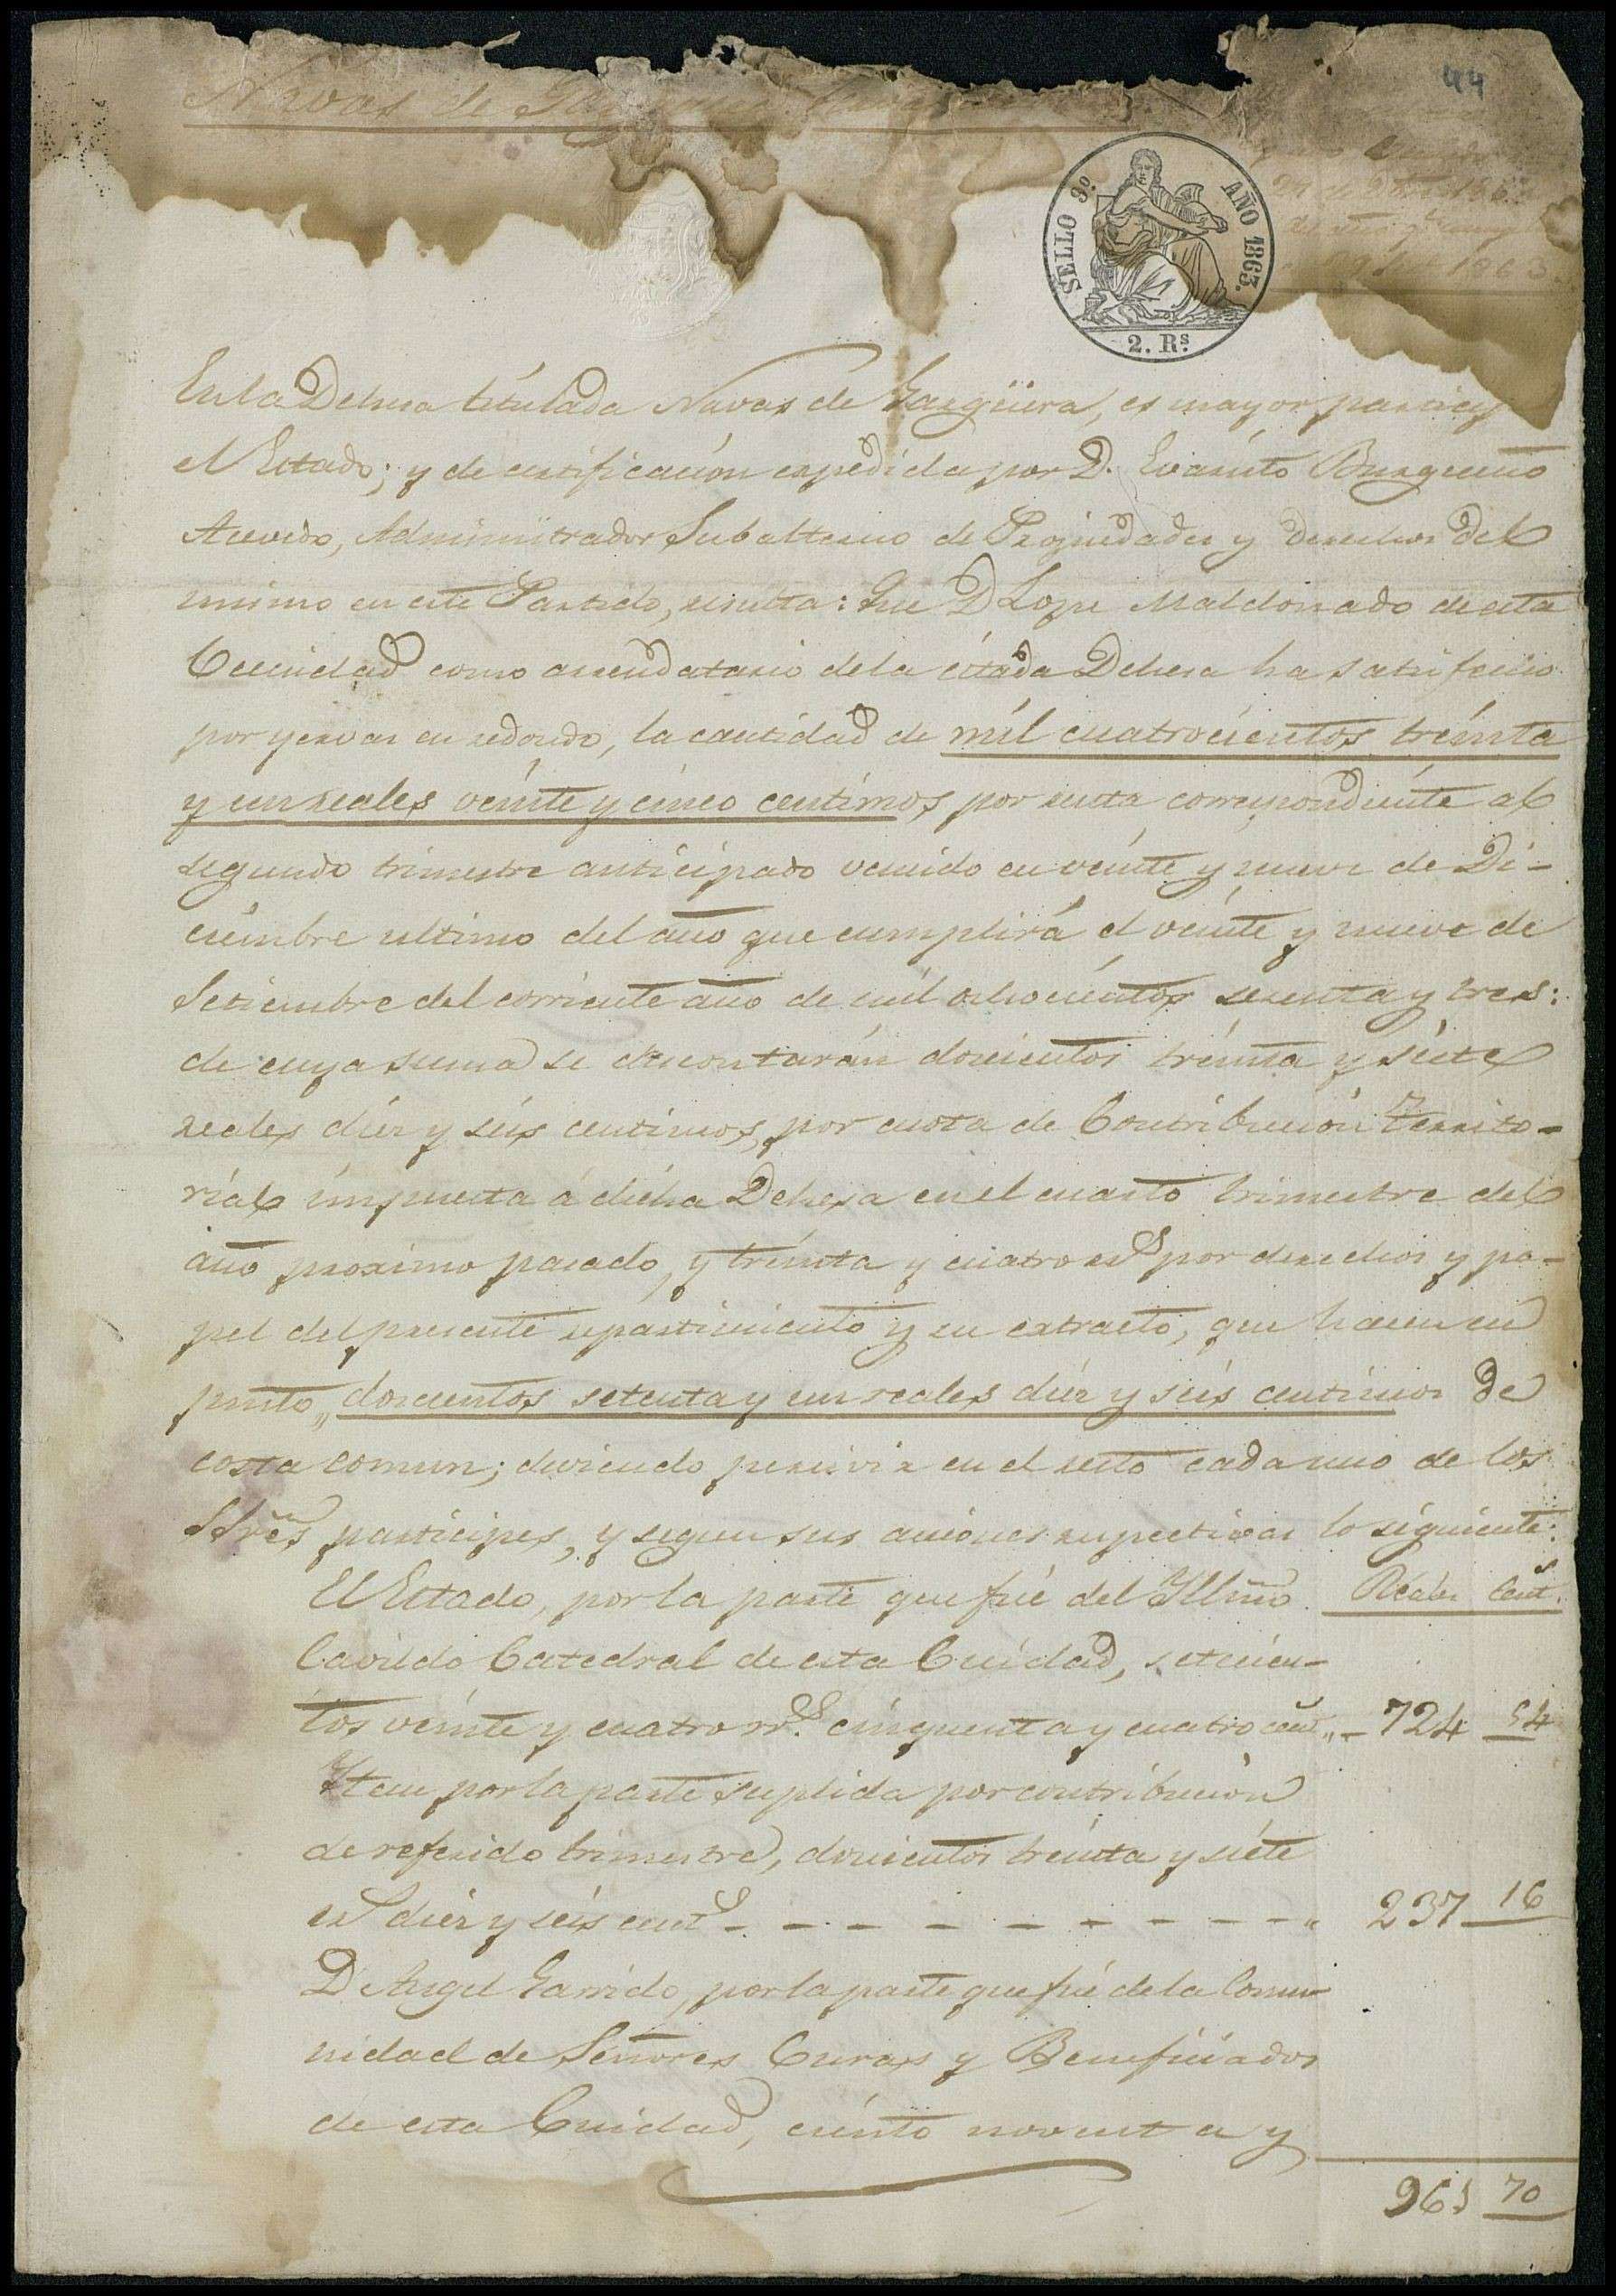 44
Navas de
29 de Dbre 186
1863
SELLO 9º. AÑO 1863.
2. Rˢ.
En la Dehesa titulada Navas de Gargüera, es mayor participe
el Estado; y de certificación expedida por D. Evaristo Burgueño
Acevedo, Administrador Subalterno de Propiedades y derechos del
mismo en este Partido, resulta: Que D Lope Maldonado de esta
Ciudad como arrendatario de la citada Dehesa ha satisfecho
por yervas en redondo, la cantidad de mil cuatrocientos treinta
y un reales veinte y cinco centimos por renta correspondiente al
segundo trimestre anticipado vencido en veinte y nueve de Di-
ciembre ultimo del año que cumplirá el veinte y nueve de
Setiembre del corriente año de mil ochocientos sesenta y tres:
de cuya suma se descontarán doscientos treinta y siete
reales diez y seis centimos, por cuota de Contribución Territo-
rial impuesta á dicha Dehesa en el cuarto trimestre del
año proximo pasado, y treinta y cuatro rˢ por derechos y pa-
pel del presente repartimiento y su extracto, que hacen un
punto,, doscientos setenta y un reales diez y seis centimos de
costa comun; deviendo percivir en el resto cada uno de los
SSres participes, y segun sus aciones respectivas lo siguiente:
El Estado, por la parte que fué del Yllmo. Reales Cents.
Cavildo Catedral de esta Ciudad, setecien-
tos veinte y cuatro rrˢ. cinquenta y cuatro cent ,,- 724 54
Ytem por la parte suplida por contribución
de referido trimestre, doscientos treinta y siete
rˢ diez y seis centˢ - - - - - - - - - - ,, 237 16
D Angel Garrido, por la parte que fué de la Comu-
nidad de Señores Curas y Beneficiados
de esta Ciudad, ciento noventa y
961 70